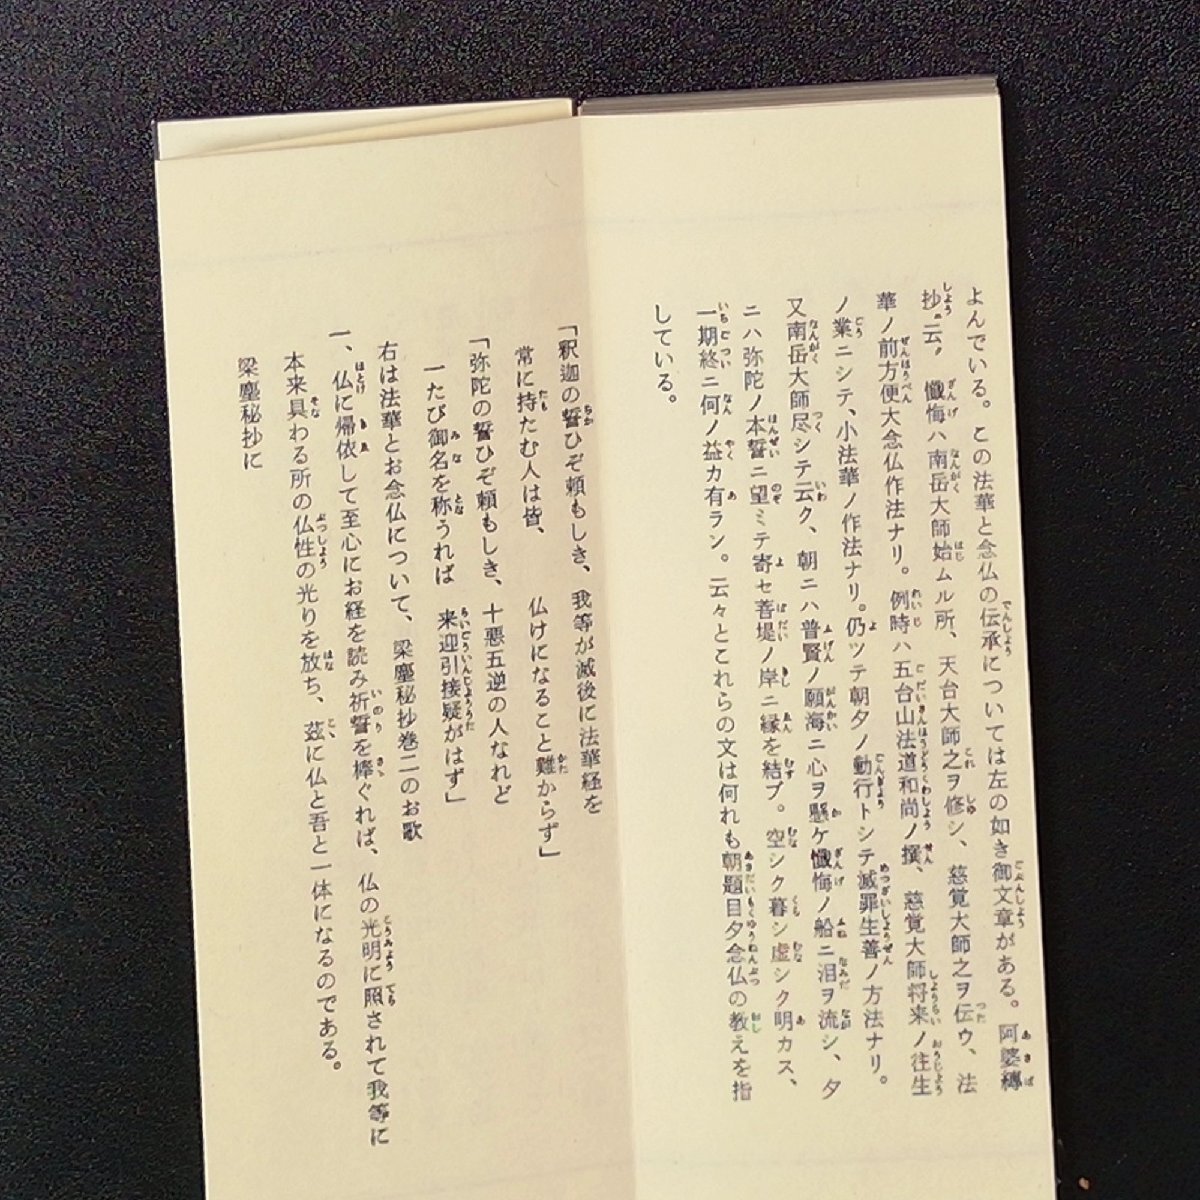 よんでいる。この法華と念仏の伝承については左の如き御文章がある。阿婆縛
抄ニ云ク懺悔ハ南岳大師始ムル所、天台大師之ヲ修シ、慈覚大師之ヲ伝ウ、法
華ノ前方便大念仏作法ナリ。例時ハ五台山法道和尚ノ撰、慈覚大師将来ノ往生
ノ業ニシテ、小法華ノ作法ナリ。仍ツテ朝夕ノ勤行トシテ滅罪生善ノ方法ナリ。
又南岳大師尽シテ云ク、朝ニハ普賢ノ願海ニ心ヲ懸ケ懺悔ノ船ニ泪ヲ流シ、夕
ニハ弥陀ノ本誓ニ望ミテ寄セ菩堤ノ岸ニ縁を結ブ。空シク暮シ虚シク明カス、
一期終ニ何ノ益カ有ラン。云々とこれらの文は何れも朝題目夕念仏の教えを指
している。
「釈迦の誓ひぞ頼もしき、我等が滅後に法華経を
常に持たむ人は皆、仏けになること難からず」
「弥陀の誓ひぞ頼もしき、十悪五逆の人なれど
一たび御名を称うれば　来迎引接疑がはず」
右は法華とお念仏について、梁塵秘抄巻二のお歌
一、仏に帰依して至心にお経を読み祈誓を捧ぐれば、仏の光明に照されて我等に
本来具わる所の仏性の光りを放ち、茲に仏と吾と一体になるのである。
梁塵秘抄に